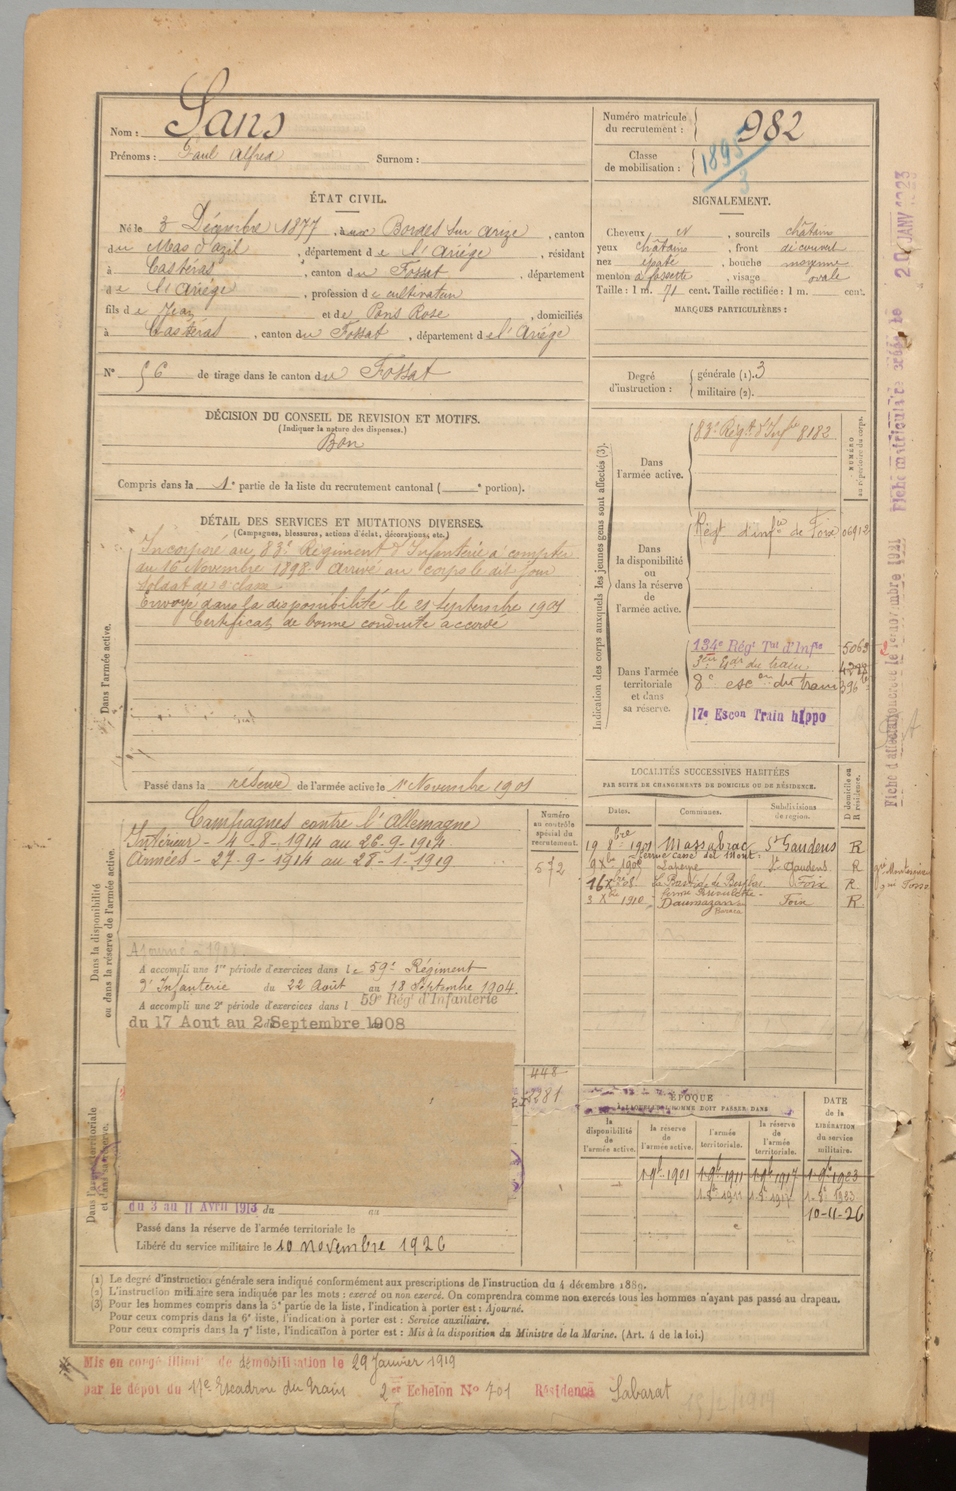 Nom : Sans
Prénoms : Paul Alfred Surnom :
Numéro matricule du recrutement : 982
Classe de mobilisation : 1895
3
ÉTAT CIVIL.
Né le 3 Décembre 1877, aux Bordes sur Arize, canton
du Mas d'azil, département de l'Ariège, résidant
à Castéras, canton du Fossat, département
de l'Ariège, profession de cultivateur
fils de Jean et de Pons Rose, domiciliés
à Castéras, canton du Fossat, département de l'Ariège
N° 56 de tirage dans le canton du Fossat
SIGNALEMENT.
Cheveux N, sourcils châtain
yeux châtains, front découvert
nez épaté, bouche moyenne
menton à fossette, visage ovale
Taille : 1 m. 71 cent. Taille rectifiée : 1 m. cent.
MARQUES PARTICULIÈRES :
Degré d'instruction : générale (1). 3
militaire (2).
DÉCISION DU CONSEIL DE REVISION ET MOTIFS.
(Indiquer la nature des dispenses.)
Bon
Compris dans la 1e partie de la liste du recrutement cantonal ( e portion).
DÉTAIL DES SERVICES ET MUTATIONS DIVERSES.
(Campagnes, blessures, actions d'éclat, décorations, etc.)
Dans l'armée active.
Incorporé au 83e Régiment d'Infanterie à compter
du 16 Novembre 1898. Arrivé au corps le dit jour
soldat de 2e classe
Envoyé dans la disponibilité le 21 septembre 1901
Certificat de bonne conduite accordé
Passé dans la réserve de l'armée active le 1er Novembre 1901
Indication des corps auxquels les jeunes gens sont affectés (3).
NUMÉRO au répertoire du corps.
Dans l'armée active.
83e Régt d'Infie 8182
Dans la disponibilité ou dans la réserve de l'armée active.
Régt d'infie de Foix 06912
Dans l'armée territoriale et dans sa réserve.
134e Régt Tal d'Infie
8e escon du train
17e Escon Train hippo
Dans la disponibilité ou dans la réserve de l'armée active.
Campagnes contre l'Allemagne
Intérieur - 4-8-1914 au 26-9-1914
Armées - 27-9-1914 au 28-1-1919
Numéro au contrôle spécial du recrutement.
572
A accompli une 1re période d'exercices dans le 59e Régiment
d'Infanterie du 22 Août au 18 Septembre 1904.
A accompli une 2e période d'exercices dans l 59e Rég d'Infanterie
du 17 Aout au 2 Septembre 1908
LOCALITÉS SUCCESSIVES HABITÉES
PAR SUITE DE CHANGEMENTS DE DOMICILE OU DE RÉSIDENCE.
Dates. Communes. Subdivisions de région. D domicile ou R résidence.
19 8bre 1901 Massabrac St Gaudens R
St Gaudens R
Foix R
3 Xbre 1910 Daumazan Foix R
448
2281
Dans l'armée territoriale et dans sa réserve.
du 3 au 11 Avril 1913 du au
Passé dans la réserve de l'armée territoriale le
Libéré du service militaire le 10 novembre 1926
ÉPOQUE
À LAQUELLE L'HOMME DOIT PASSER DANS
la disponibilité de l'armée active.
la réserve de l'armée active.
l'armée territoriale.
la réserve de l'armée territoriale.
DATE de la LIBÉRATION du service militaire.
1-9bre 1901 1-9bre 1911 1-9bre 1917 1-9bre 1923
10-11-26
(1) Le degré d'instruction générale sera indiqué conformément aux prescriptions de l'instruction du 4 décembre 1889.
(2) L'instruction militaire sera indiquée par les mots : exercé ou non exercé. On comprendra comme non exercés tous les hommes n'ayant pas passé au drapeau.
(3) Pour les hommes compris dans la 5e partie de la liste, l'indication à porter est : Ajourné.
Pour ceux compris dans la 6e liste, l'indication à porter est : Service auxiliaire.
Pour ceux compris dans la 7e liste, l'indication à porter est : Mis à la disposition du Ministre de la Marine. (Art. 4 de la loi.)
Mis en congé illimité de démobilisation le 29 Janvier 1919
par le dépôt du 17e Escadron du Train 2e Echelon No 701 Résidence Sabarat
15/2/1919